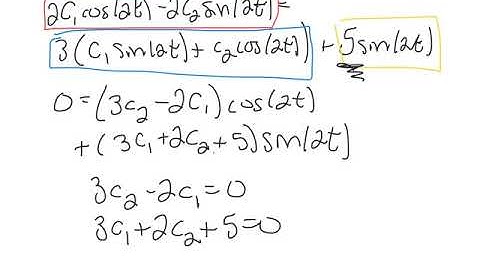 2c₁cos(2t)-2c₂sin(2t)=
3(c₁sin(2t)+c₂cos(2t))+5sin(2t)
0=(3c₂-2c₁)cos(2t)
+(3c₁+2c₂+5)sin(2t)
3c₂-2c₁=0
3c₁+2c₂+5=0